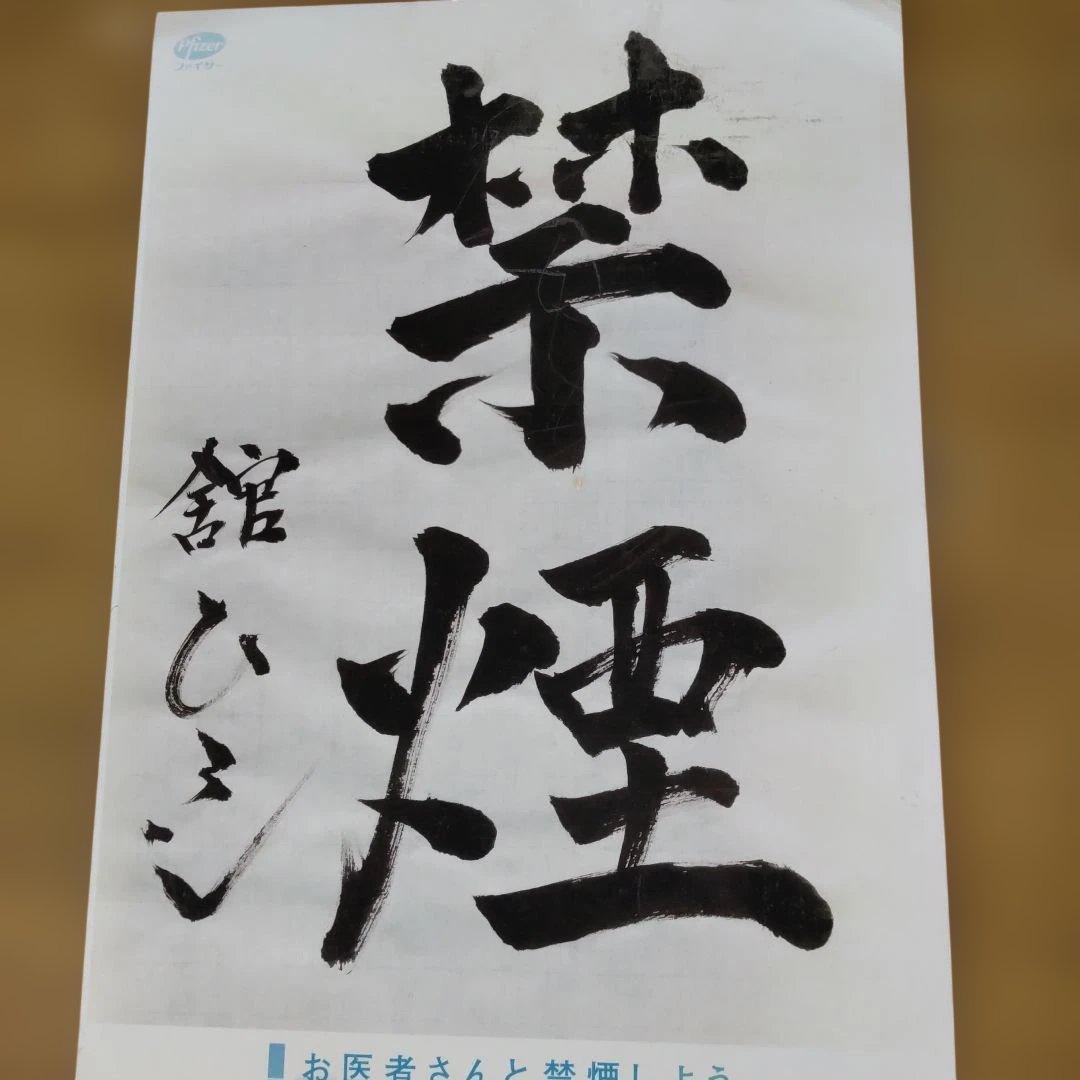 Pfizer
ファイザー
禁煙
舘ひろし
お医者さんと禁煙しよう